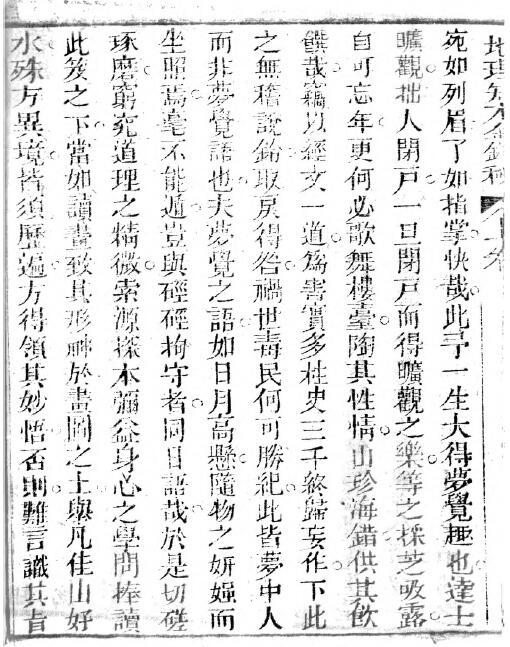 宛如列眉了如指掌快哉此予一生大得夢覺趣也達士
曠觀拙人閉戸一旦閉戸而得曠觀之樂等之採芝吸露
自可忘年更何必歌舞樓臺陶其性情山珍海錯供其飲
饌哉竊以經文一道為害實多柱史三千終歸妄作下此
之無稽說鈴取戾得咎禍世毒民何可勝紀此皆夢中人
而非夢覺語也夫夢覺之語如日月高懸隨物之妍媸而
坐照焉毫不能遁豈與硜硜拘守者同日語哉於是切磋
琢磨窮究道理之精微索源探本彌益身心之學問捧讀
此笈之下當如讀畫致其形神於畫圖之上與凡佳山好
水殊方異境皆須歷遍方得領其妙悟否則難言識其旨